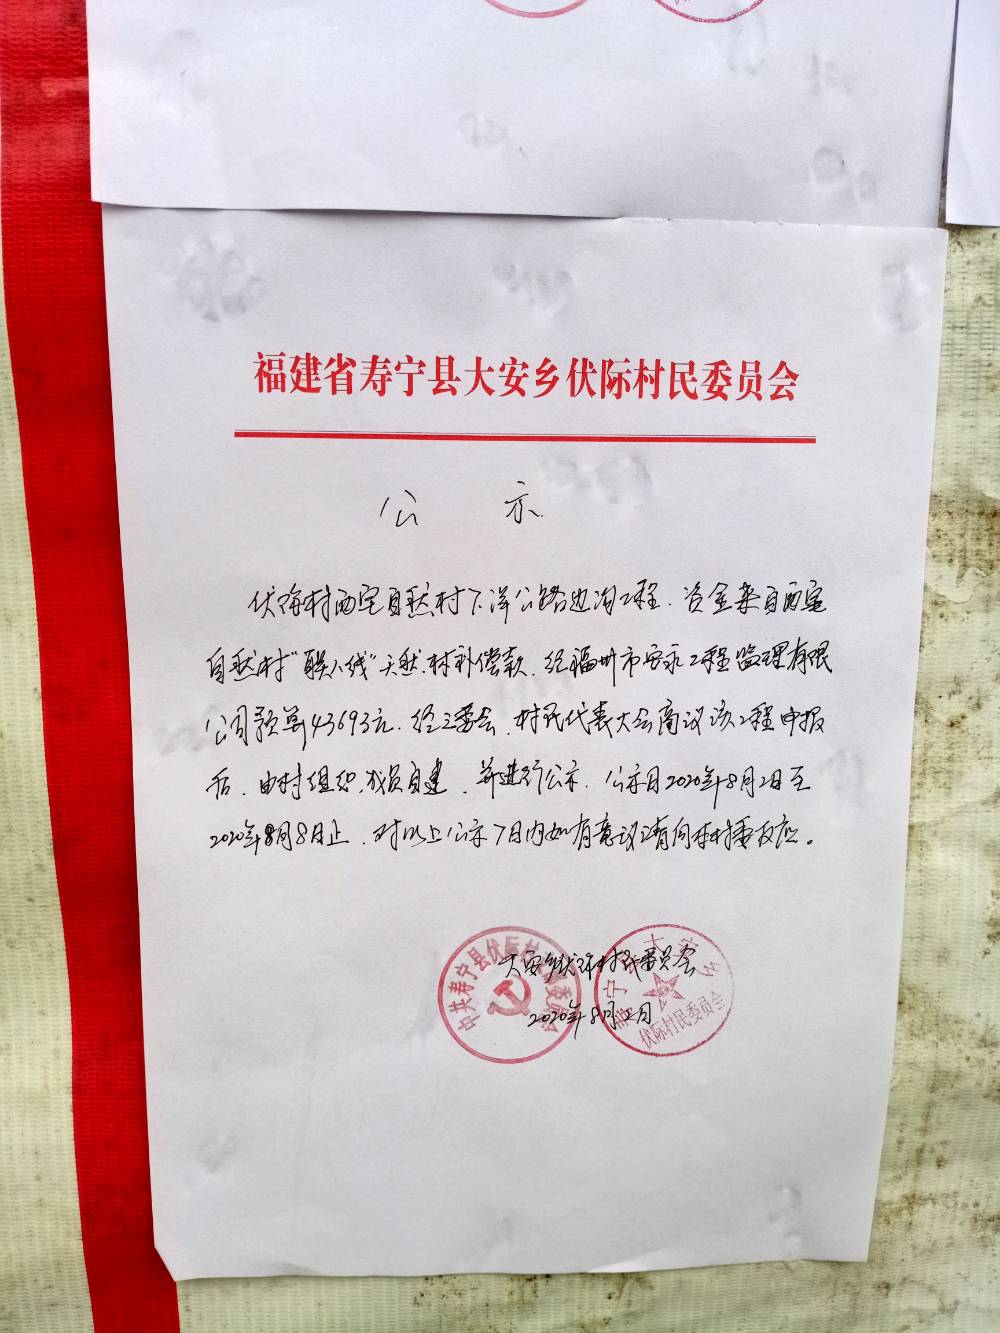 福建省寿宁县大安乡伏际村民委员会
公 示
伏际村西宅自然村下洋公路边沟工程，资金来自西宅
自然村“联八线”天然林补偿款，经福州市安永工程监理有限
公司预算43693元，经三委会、村民代表大会商议该工程申报
后，由村组织成员自建，并进行公示，公示日2020年8月2日至
2020年8月8日止，对以上公示7日内如有意议请向本村委反应。
大安乡伏际村民委员会
2020年8月2日
中共寿宁县伏际村委员会
寿宁 大安乡
伏际村民委员会